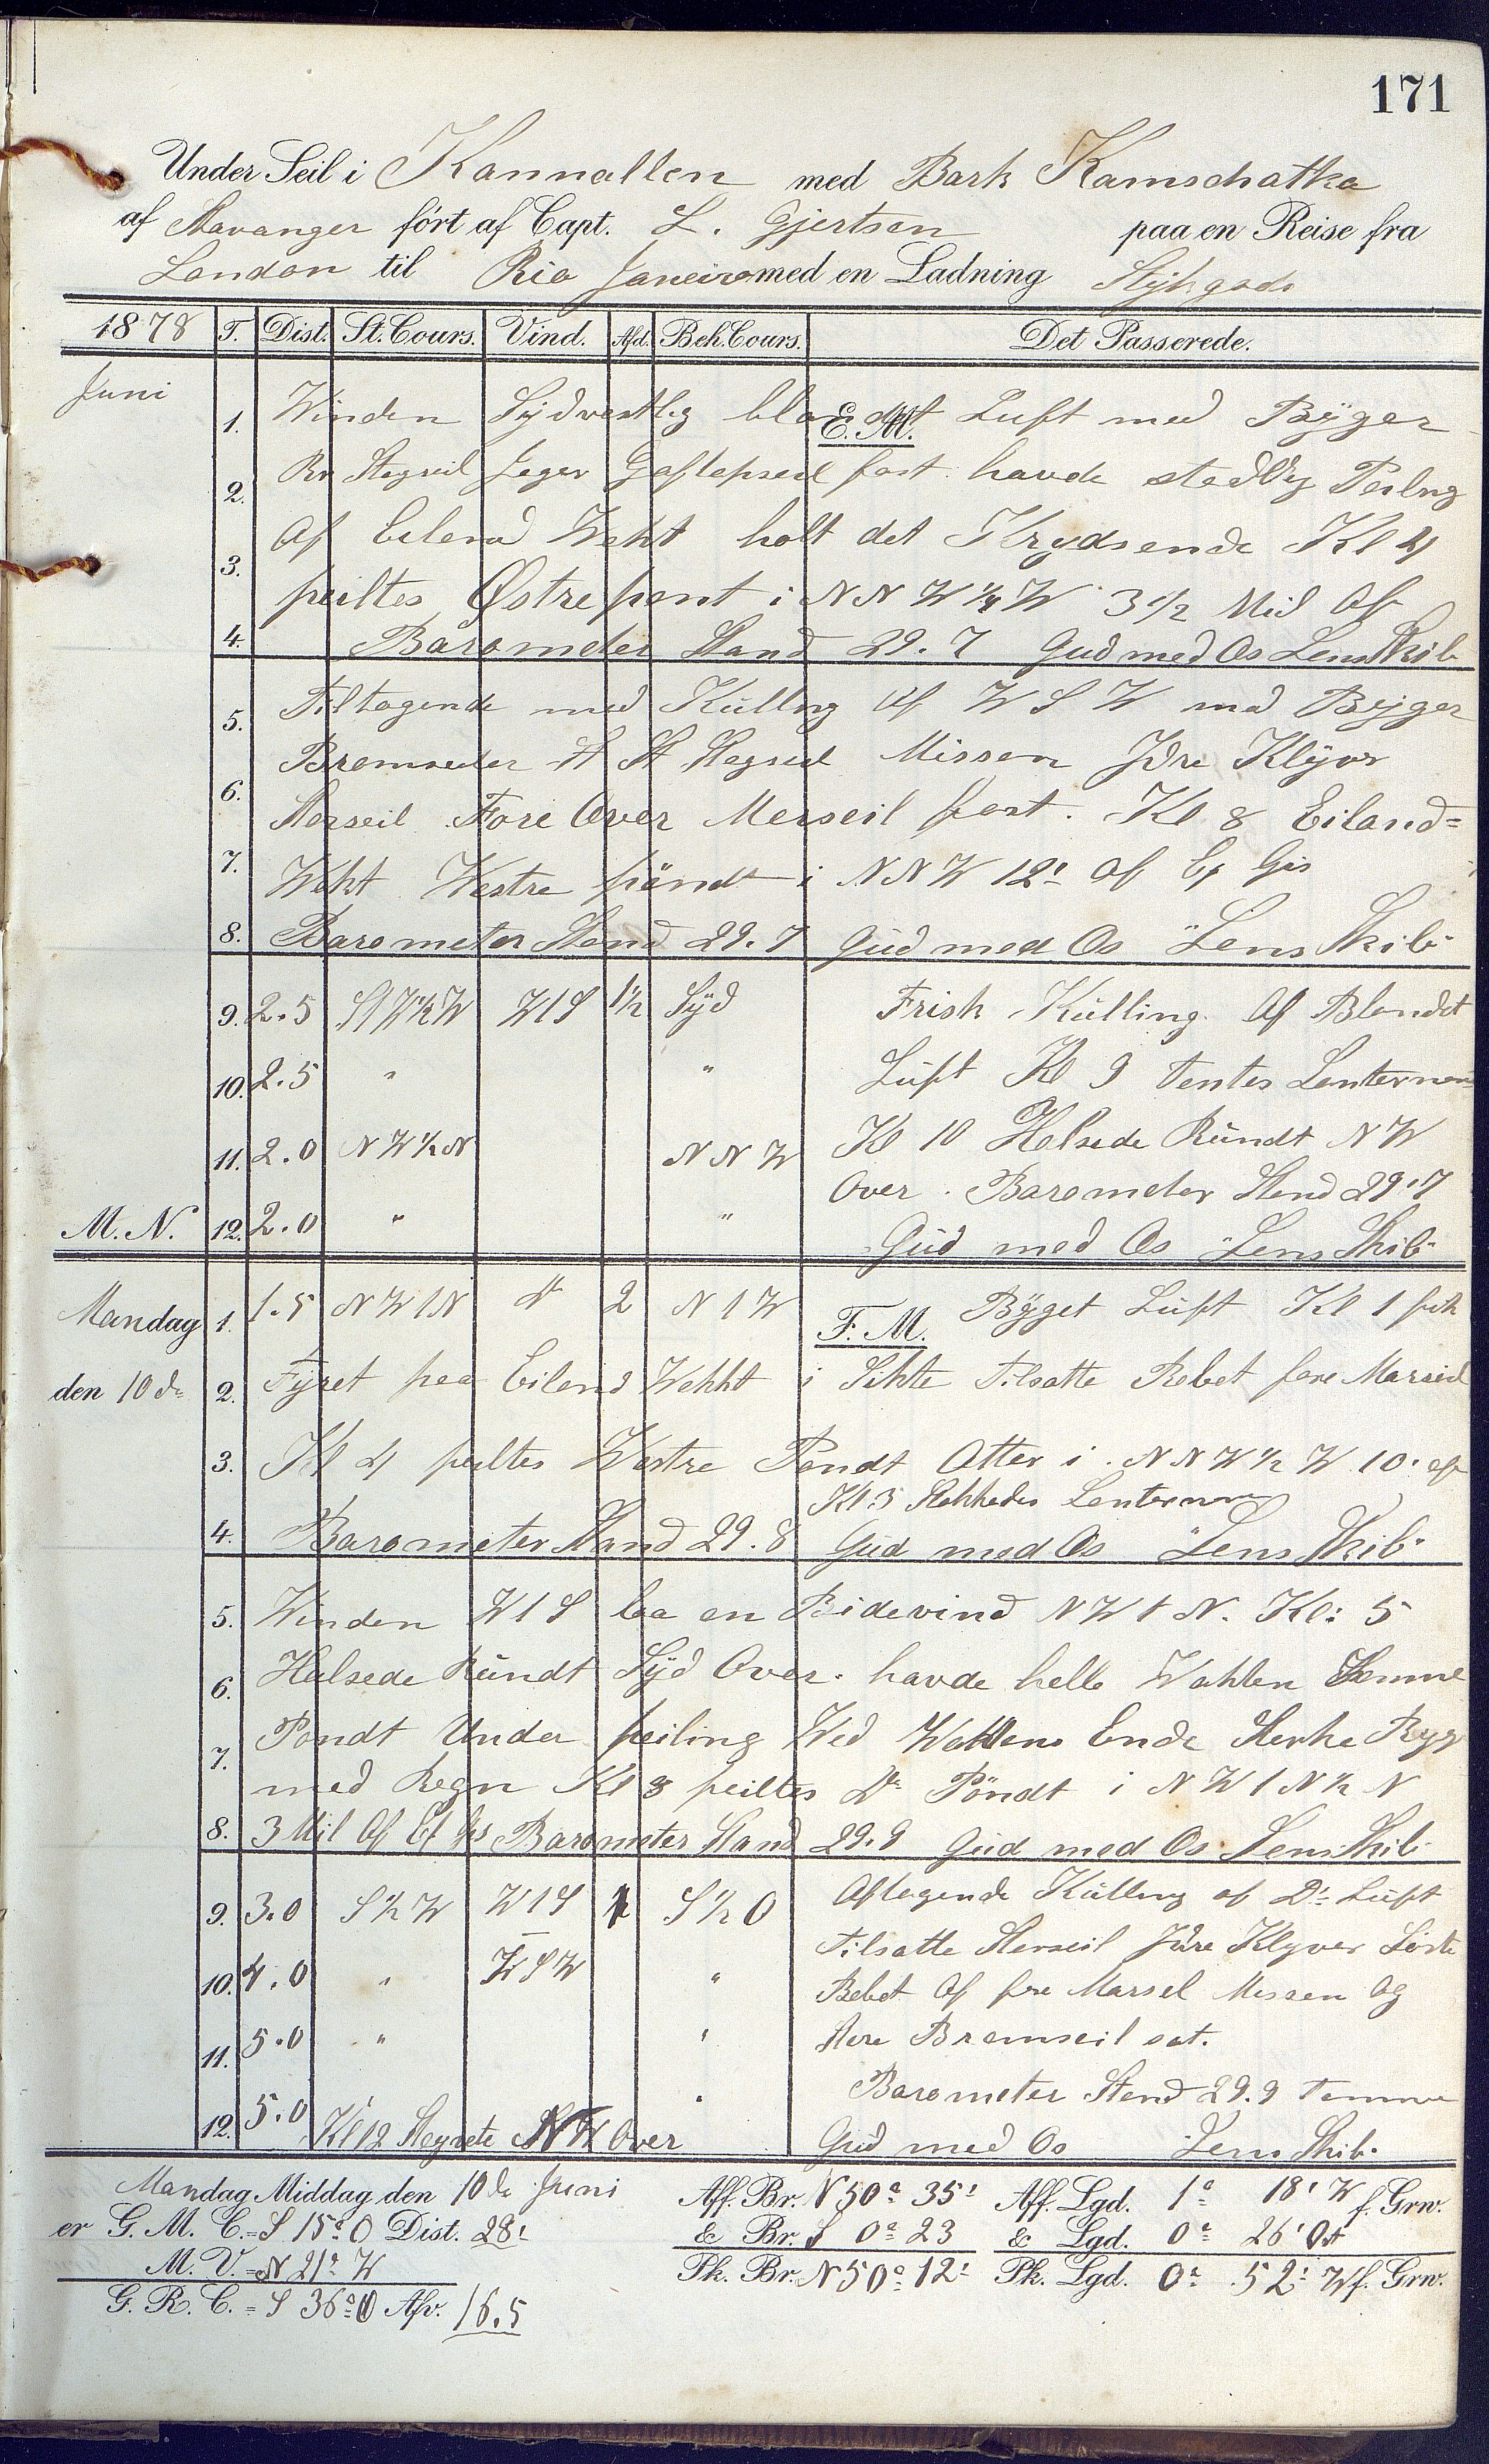 171
Under Seil i Kannallen med Bark Kamschatka
af Stavanger fört af Capt. L. Gjertsen paa en Reise fra
London til Rio Janeiro med en Ladning Stÿkgods
1878 T. Dist. St. Cours. Vind. Afd. Beh. Cours. Det Passerede.
Juni
1. Winden Sÿdvestlig blandet Luft med Bÿger
E. M.
2. Stagseil Jager Gaflapseil fast. havde stadig Peilng
3. Af Eiland Weht holt det Krydsende Kl 4
peiltes Østre pont i N N W 1/4 W 3 1/2 Mil Af
4. Barometer Stand 29.7 Gud med Os Lens Skib
5. Tiltagende med Kulling Af W S W med Bÿger
6. Bramseiler St Stagseil Missen Jdre Klÿver
Storseil Fore Over Merseil fast. Kl 8 Eiland=
7. Weht Westre pöndt i N N W 12' Af Gis
8. Barometer Stand 29.7 Gud med Os Lens Skib
9. 2.5 S1W½W W1S 1½ Sÿd Frisk Kulling Af Blandet
10. 2.5 " " Luft Kl 9 tentes Lanternene
11. 2.0 NW½N NNW Kl 10 Halsede Rundt NW
Over. Barometer Stand 29.7
M. N. 12. 2.0 " " Gud med Os Lens Skib
Mandag 1. 1.5 NW1N 2 N1W F. M. Bÿget Luft Kl 1 fik
den 10de 2. Fyret paa Eiland Wehht i Sikte Tilsatte Rebet fore Marseil
3. Kl 4 peiltes Westre Pondt Atter i N N W ½ W 10' af
Kl 3 Slukkedes Lanternene
4. Barometer Stand 29.8 Gud med Os Lens Skib
5. Winden W1S laa en Bidevind NW1N. Kl: 5
6. Halsede Rundt Sÿd Over. havde helle Wahten Samme
7. Pondt Under peiling Wed Wahtens Ende Sterke Byg
med Regn Kl 8 peiltes Do Pöndt i N W 1 N ½ N
8. 3 Mil Af Ef Gis Barometer Stand 29.9 Gud med Os Lens Skib
9. 3.0 S½W W1S 1 S½O Aftagende Kulling af Do Luft
Tilsatte Storseil Jdre Klyver Löste
10. 4.0 " WSW " Rebet Af fore Marsel Messen Og
11. 5.0 " " Store Bramseil sat.
Barometer Stand 29.9 Tomme
12. 5.0 Kl 12 Stagvente NW Over " Gud med Os Lens Skib
Mandag Middag den 10de Juni Aff. Br. N 50° 35' Aff. Lgd. 1° 18' W f. Grw.
er G. M. C. = S 15° O Dist. 28' & Br. S 0° 23 & Lgd. 0° 26' Ost
M. V. = N 21° W Pk. Br. N 50° 12' Pk. Lgd. 0° 52' W f. Grw.
G. R. C. = S 36° O Afv. 16.5